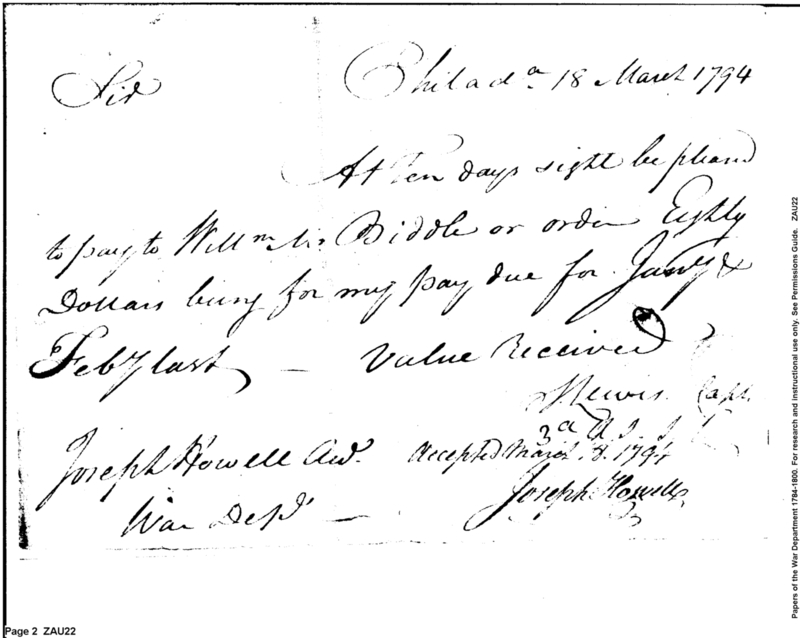 Sir Philada 18 March 1794
At Ten days sight be pleased
to pay to Willm Biddle or order Eighty
Dollars being for my pay due for Jany &
Feby last, — Value Received
Lewis Capt.
3d U.S.
Joseph Howell Accepted March 18. 1794
War Dept — Joseph Howell
Papers of the War Department 1784-1800. For research and instructional use only. See Permissions Guide. ZAU22
Page 2 ZAU22